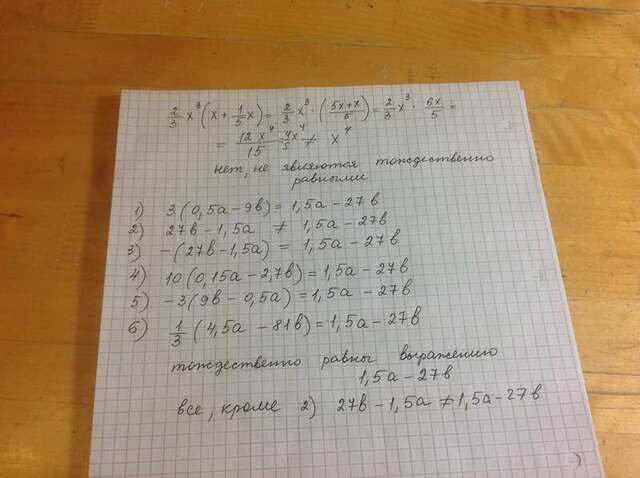 2/3 x³ (x + 1/5 x) = 2/3 x³ · (5x+x/5) = 2/3 x³ · 6x/5 =
= 12x⁴/15 = 4x⁴/5 ≠ x⁴
нет, не являются тождественно
равными
1) 3(0,5a - 9в) = 1,5a - 27в
2) 27в - 1,5a ≠ 1,5a - 27в
3) -(27в - 1,5a) = 1,5a - 27в
4) 10(0,15a - 2,7в) = 1,5a - 27в
5) -3(9в - 0,5a) = 1,5a - 27в
6) 1/3 (4,5a - 81в) = 1,5a - 27в
тождественно равны выражению
1,5a - 27в
все, кроме 2) 27в - 1,5a ≠ 1,5a - 27в